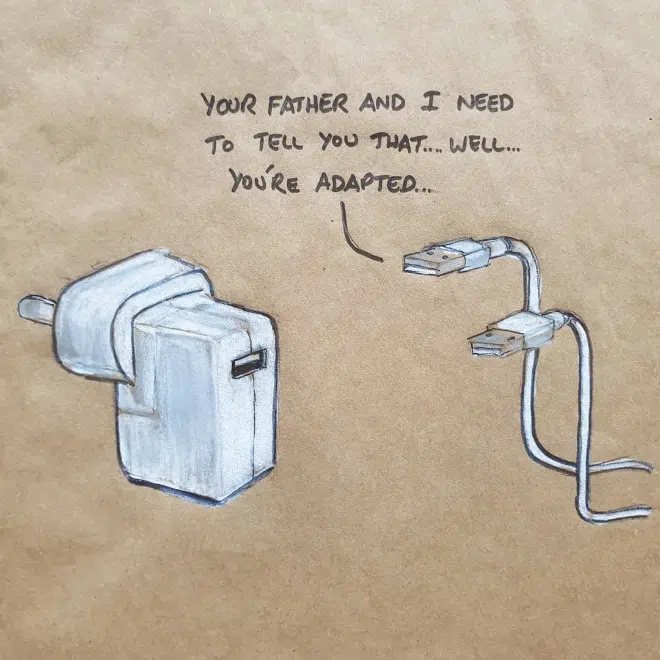 YOUR FATHER AND I NEED
TO TELL YOU THAT.... WELL...
YOU'RE ADAPTED...